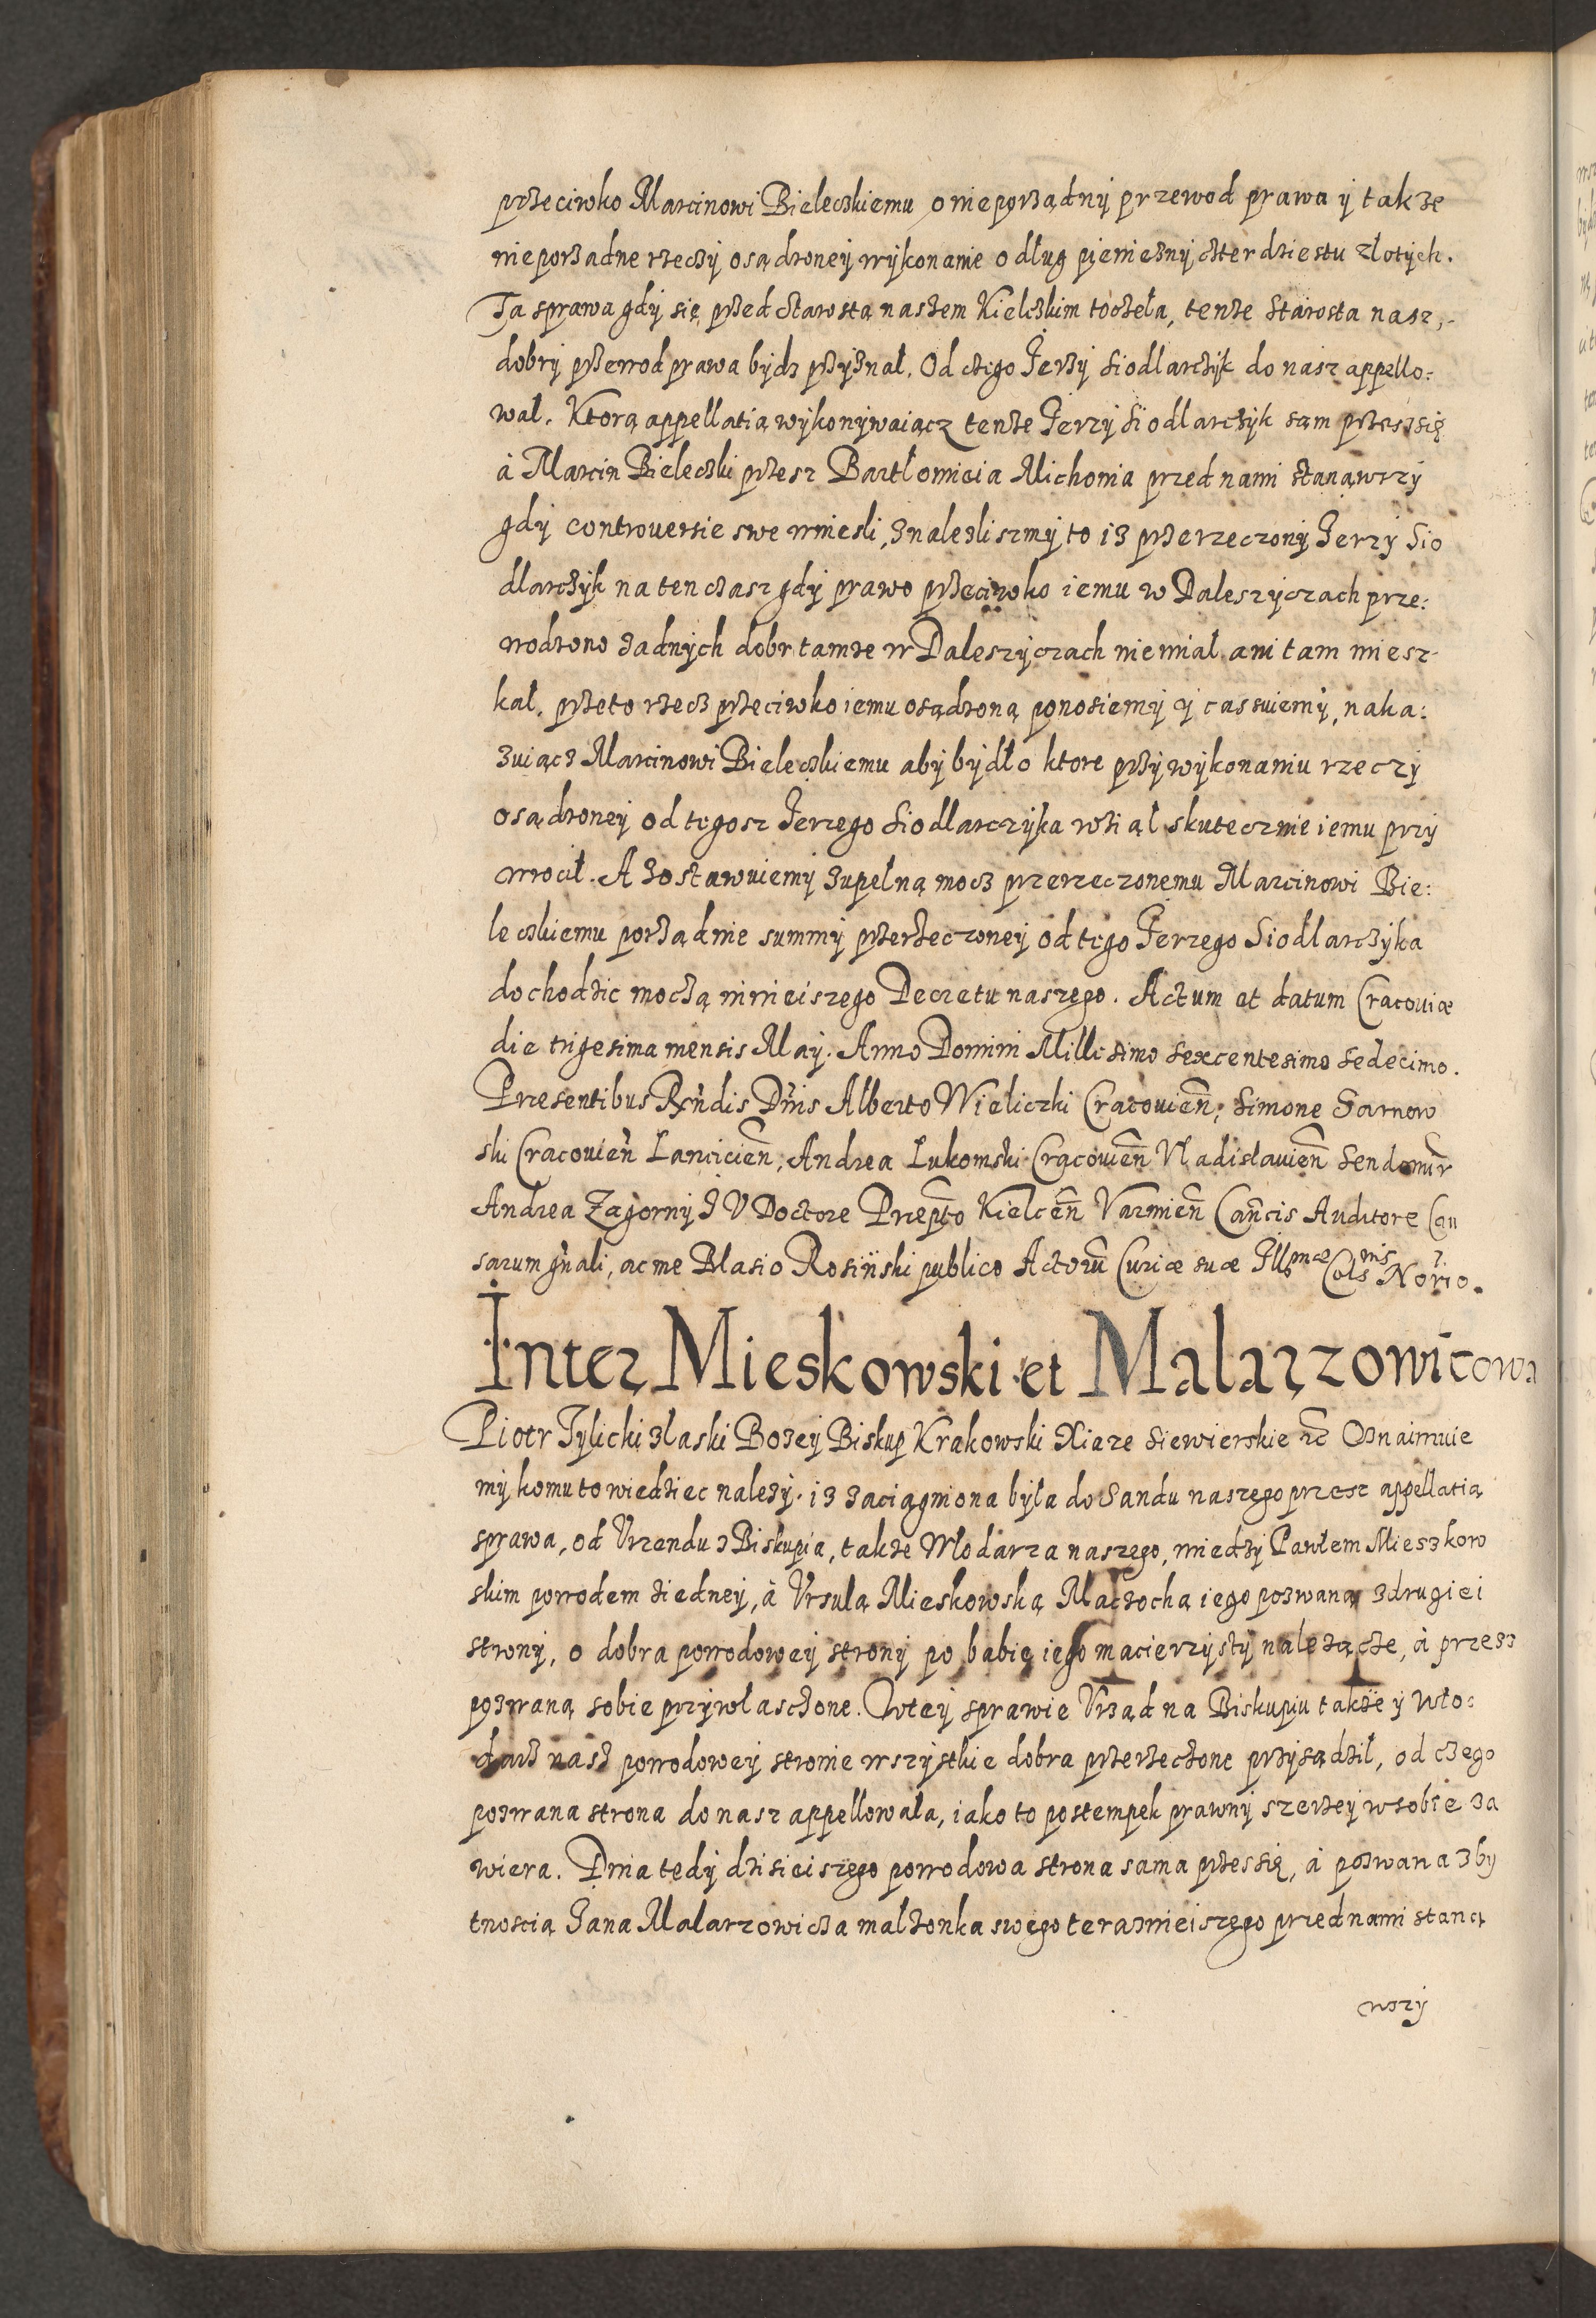 przeciwko Marcinowi Bieleczkiemu o nieporządny przewod prawa y także
nieporzadne rzeczy osądzoney wykonanie o dług pieniezny czterdziestu złotych.
Ta sprawa gdy się przed Starostą naszem Kielczkim toczeła, tenze Starosta nasz,
dobry przewod prawa bydz przyznał. Od czego Jerzy Siodlarczyk do nasz appello:
wał. Ktorą appellatią wykonywaiącz tenze Jerzy Siodlarczyk sam przessię
à Marcin Bieleczki przesz Bartłomieia Michonia przed nami stanąwrzy
gdy controuersie swe wniesli, znalezliszmy to iz przerzeczony Jerzy Sio
dlarczyk na ten czasz gdy prawo przeciwko iemu w Daleszyczach prze:
wodzono zadnych dobr tamze w Daleszyczach niemiał ani tam miesz-
kał, przeto rzecz przeciwko iemu osądzoną ponosiemy y cassuiemy, naka:
zuiącz Marcinowi Bieleczkiemu aby bydło ktore przy wykonaniu rzeczy
osądzoney od tegosz Jerzego Siodlarczyka wziął skutecznie iemu przy
wrocił. A zostawuiemy zupełną mocz przerzeczonemu Marcinowi Bie:
leczkiemu porządnie summy przerzeczoney od tego Jerzego Siodlarczyka
dochodzic moczą ninieiszego Decretu naszego. Actum et datum Cracouiæ
die trigesima mensis May. Anno Domini Millesimo Sexcentesimo Sedecimo.
Presentibus Rñdis Dñis Alberto Wieliczki Cracouieñ, Simone Sarnow
ski Cracouieñ Lancicieñ, Andrea Lukomski Cracouieñ Vladislauieñ Sendomir
Andrea Zagorny J V Doctore Præpto Kielceñ Varmieñ Cañcis Auditore Cau
sarum gñali, ac me Blasio Rosiński publico Actorũ Curiæ suæ Illmæ Celsnis Norio.
Inter Mieskowski et Malarzowicowa
Piotr Tylicki zlaski Bozey Biskup Krakowski Xiaze Siewierskie etc Oznaimuie
my komu to wiedziec nalezy. iz zaciągniona była do Sandu naszego przesz appellatią
sprawa, od Vrzendu z Biskupia, takze Włodarza naszego, miedzy Pawłem Mieszkow
skim powodem ziedney, à Vrsulą Mieskowską Maczochą iego pozwaną zdrugiei
strony, o dobra powodowey strony po babie iego macierzysty nalezącze, à przesz
pozwaną sobie przywłasczone. Wtey sprawie Vrząd na Biskupiu takze y wło:
darz nasz powodowey stronie wszystkie dobra przerzeczone przysądził, od czego
pozwana strona do nasz appellowała, iako to postempek prawny szerzey w sobie za
wiera. Dnia tedy dzisieiszego powodowa strona sama przessię, à pozwana zby
tnoscią Jana Malarzowicza małzonka swego teraznieiszego przed nami staną
wszy